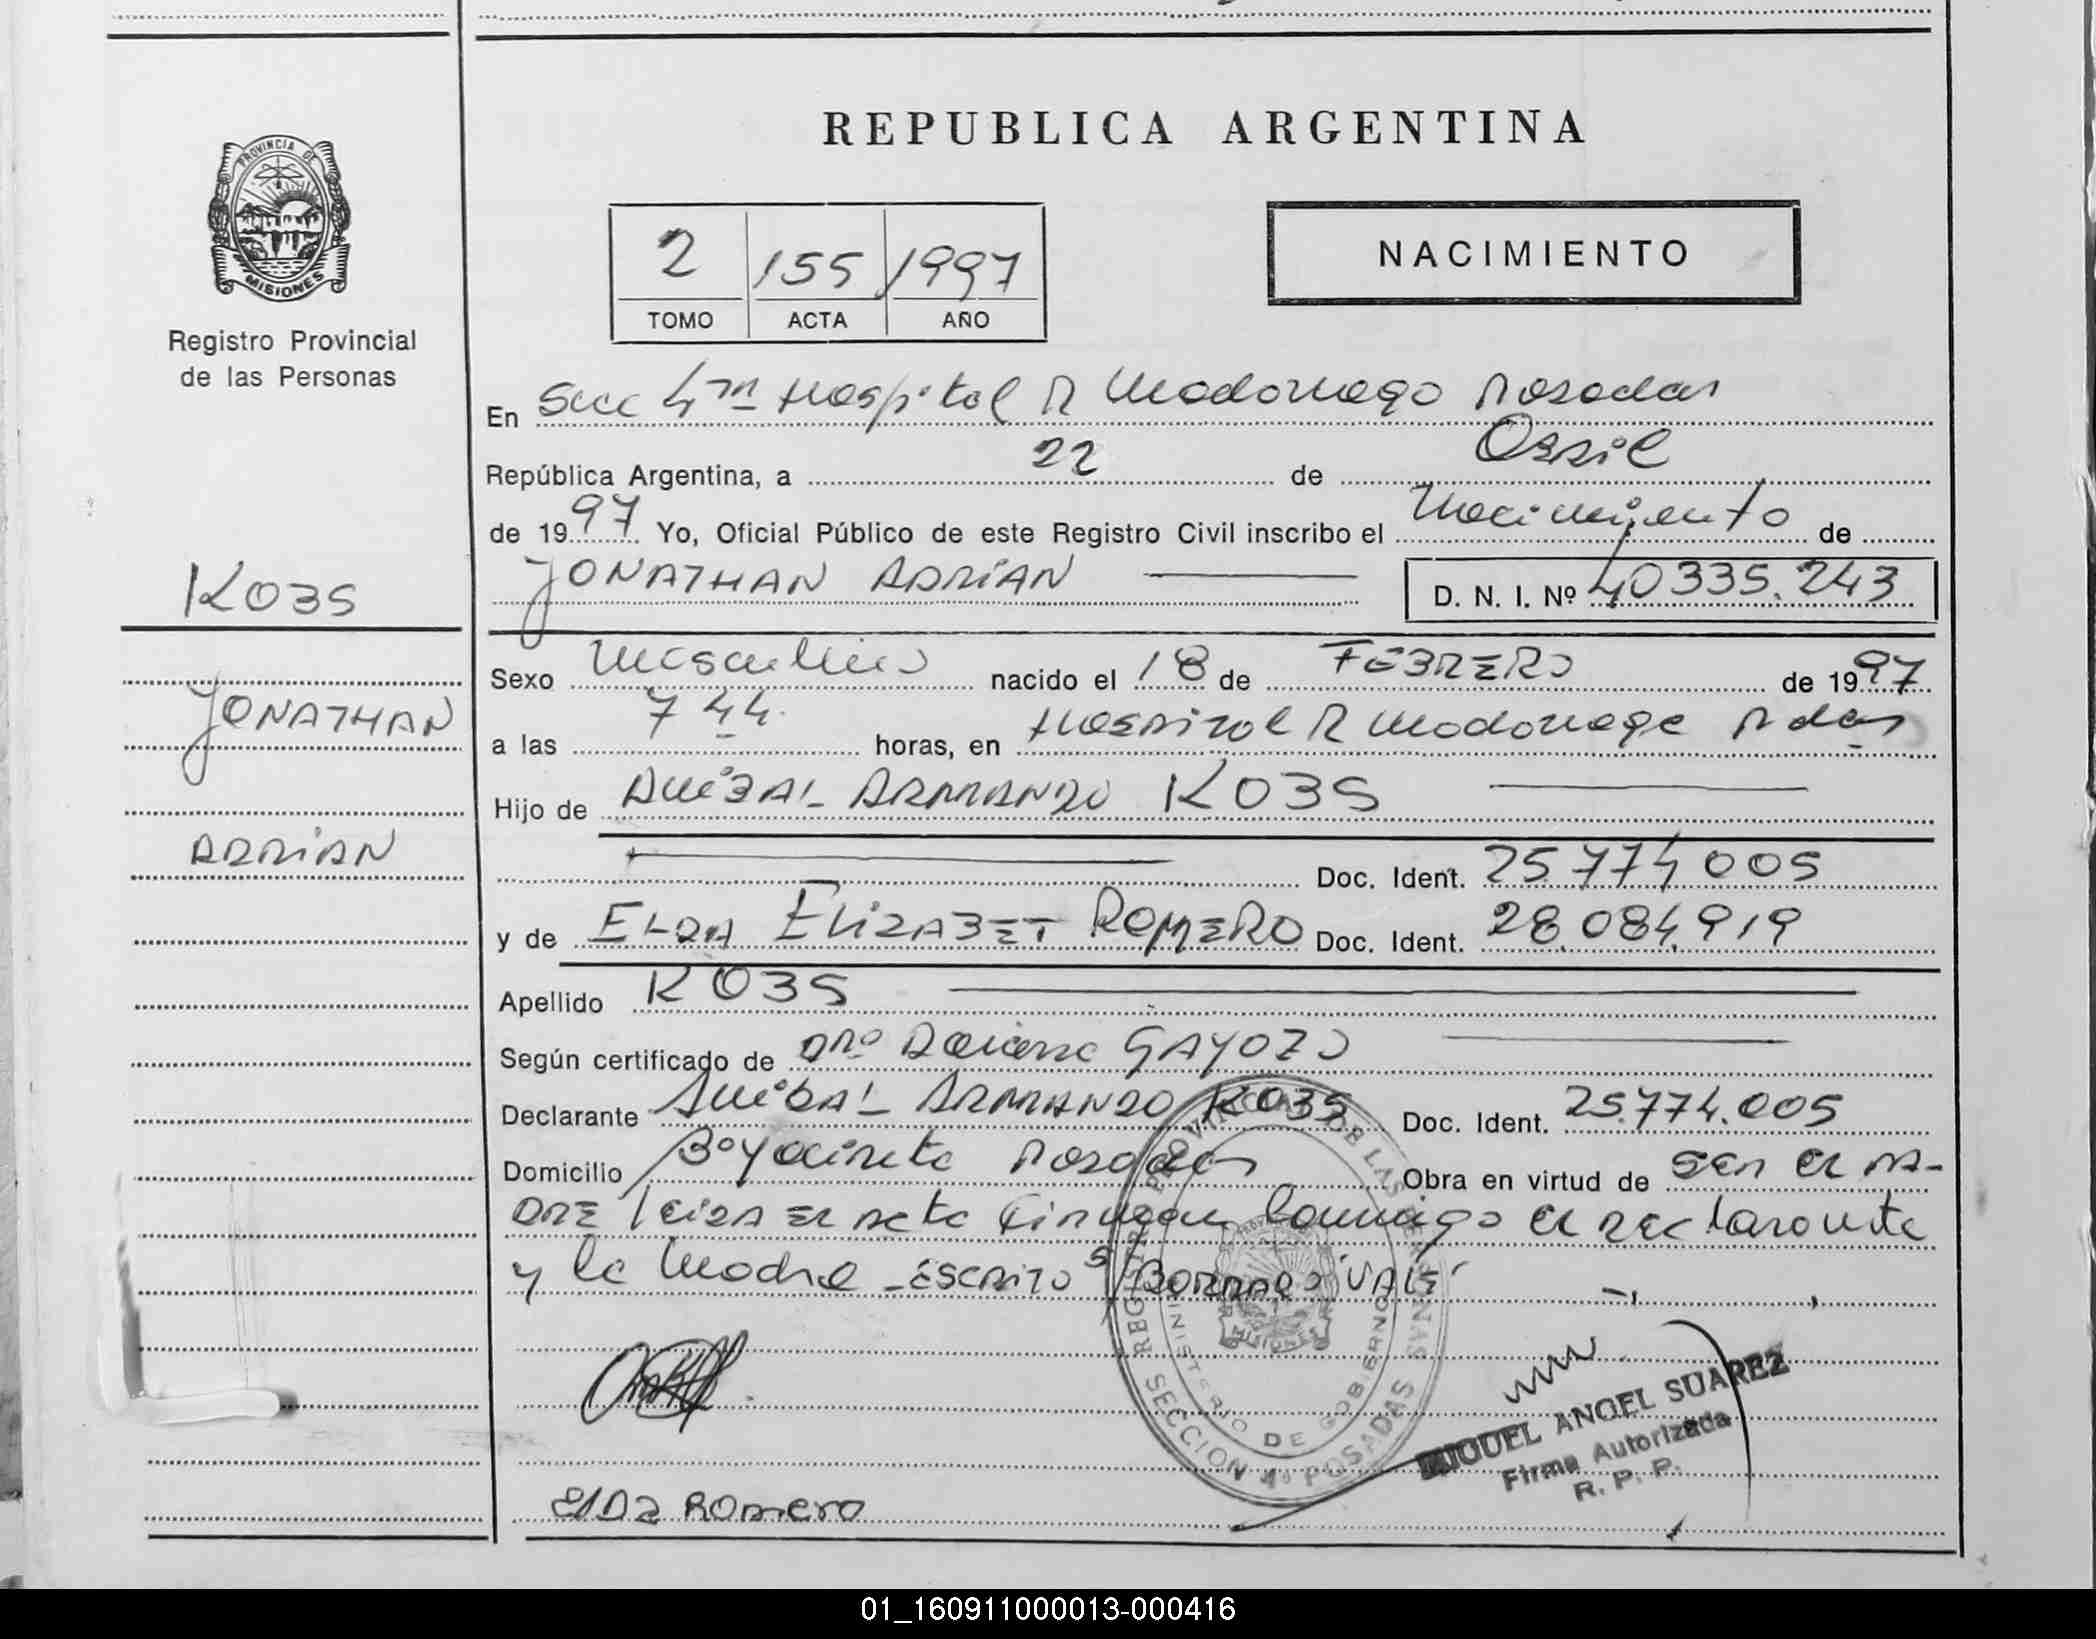 REPUBLICA ARGENTINA
PROVINCIA DE
MISIONES
Registro Provincial
de las Personas
2 155 1997
TOMO ACTA AÑO
NACIMIENTO
En Secc 4ta Hospital R Madariaga Posadas
República Argentina, a 22 de Abril
de 1997 Yo, Oficial Público de este Registro Civil inscribo el Nacimiento de
JONATHAN ADRIAN D. N. I. Nº 40335.243
KOBS
JONATHAN
ADRIAN
Sexo Masculino nacido el 18 de FEBRERO de 1997
a las 7 44 horas, en Hospital R Madariaga Pdas
Hijo de ANIBAL ARMANDO KOBS
Doc. Ident. 25.774 005
y de ELDA ELIZABET ROMERO Doc. Ident. 28.084.919
Apellido KOBS
Según certificado de GAYOZO
Declarante ANIBAL ARMANDO KOBS Doc. Ident. 25.774.005
Domicilio Bº Yacireta Posadas Obra en virtud de SER EL PA-
DRE leida el acta firman conmigo el declarante
y la Madre - ESCRITO S/BORRADO "VALE"
REGISTRO PROVINCIAL DE LAS PERSONAS
MINISTERIO DE GOBIERNO
MISIONES
SECCION 4º POSADAS
MIGUEL ANGEL SUAREZ
Firma Autorizada
R. P. P.
Elda Romero
01_160911000013-000416